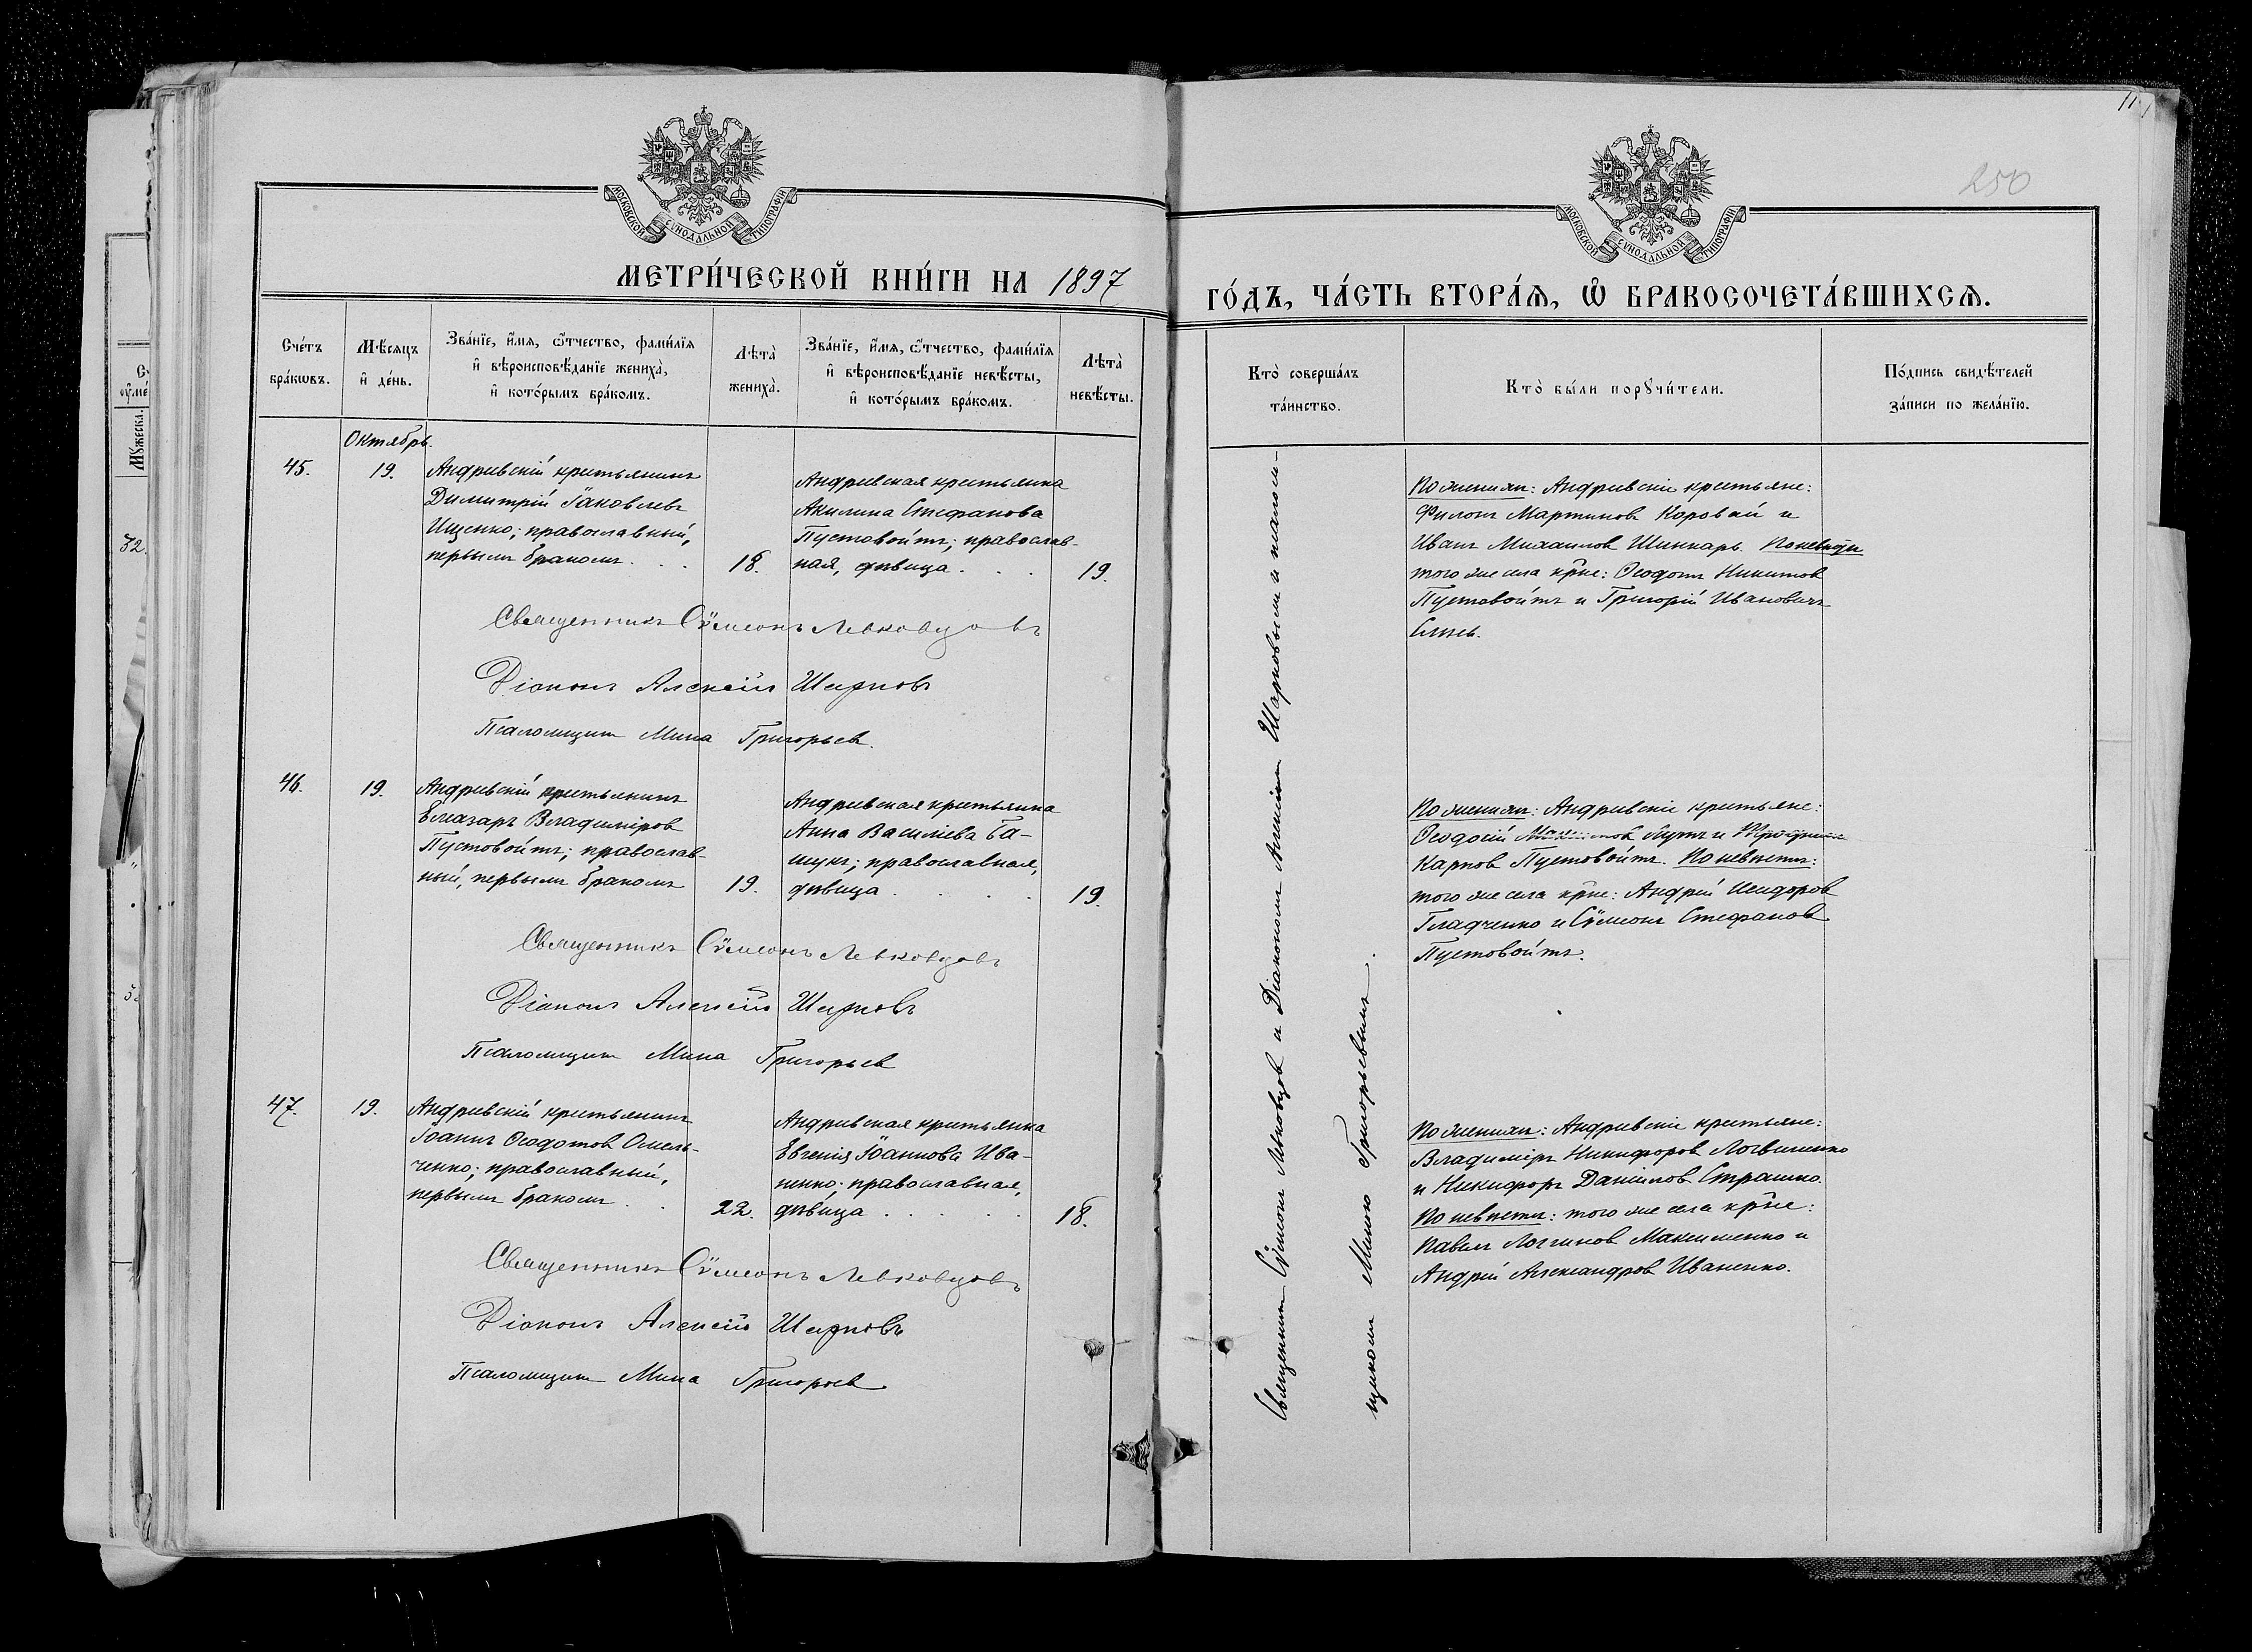 МОСКОВСКОЙ СѴНОДАЛЬНОЙ ТИПОГРАФІИ
МЕТРИ́ЧЕСКОЙ КНИ́ГИ НА 1897
Сче́тъ бра́кѡвъ.
Мѣ́сяцъ и҆ де́нь.
Зва́нїе, и҆́мя, ѻ҆́тчество, фами́лїя и҆ вѣроисповѣ́данїе жениха̀, и҆ кото́рымъ бра́комъ.
Лѣта̀ жениха̀.
Зва́нїе, и҆́мя, ѻ҆́тчество, фами́лїя и҆ вѣроисповѣ́данїе невѣ́сты, и҆ кото́рымъ бра́комъ.
Лѣта̀ невѣ́сты.
Октябрь.
45.
19.
Андреевскій крестьянинъ
Димитрій Іаковлевъ
Ищенко; православный,
первымъ бракомъ . . .
18.
Андреевская крестьянка
Акилина Стефанова
Пустовойтъ; православ-
ная, дѣвица . . .
19.
Священникъ Сѵмеонъ Левковцовъ
Діаконъ Алексій Шарповъ
Псаломщикъ Мина Григорьев.
46.
19.
Андреевскій крестьянинъ
Елеазаръ Владиміров
Пустовойтъ; православ-
ный, первымъ бракомъ
19.
Андреевская крестьянка
Анна Василіева Ба-
щукъ; православная,
дѣвица . . . .
19.
Священникъ Сѵмеонъ Левковцовъ
Діаконъ Алексій Шарповъ
Псаломщикъ Мина Григорьев
47.
19.
Андреевскій крестьянинъ
Іоаннъ Ѳеодотов Омель-
ченко; православный,
первымъ бракомъ . .
22.
Андреевская крестьянка
Евгенія Іоаннова Ива-
ненко; православная,
дѣвица . . . . .
18.
Священникъ Сѵмеонъ Левковцовъ
Діаконъ Алексій Шарповъ
Псаломщикъ Мина Григорьев
250
МОСКОВСКОЙ СѴНОДАЛЬНОЙ ТИПОГРАФІИ
ГО́ДЪ, ЧА́СТЬ ВТОРА́Я, Ѽ БРАКОСОЧЕТА́ВШИХСЯ.
Кто̀ соверша́лъ та́инство.
Кто̀ бы́ли порꙋчи́тели.
По́дпись свидѣ́телей за́писи по жела́нїю.
Священник Сѵмеон Левковцов и Діаконом Алексіем Шарповым и псалом-
щиком Миною Григорьевымъ.
По женихѣ: Андреевскіе крестьяне:
Филонъ Мартинов Коровай и
Иванъ Михаилов Шинкарь. По невѣстѣ
того же села кр̃не: Ѳеодотъ Никитов
Пустовойтъ и Григорій Ивановичъ
По женихѣ: Андреевскіе крестьяне:
Ѳеодосій и
Карпов Пустовойтъ. По невѣстѣ:
того же села кр̃не: Андрей Исидоров
Гладченко и Сѵмеонъ Стефанов
Пустовойтъ.
По женихѣ: Андреевскіе крестьяне:
Владиміръ Никифоров Логвиненко
и Никифоръ Даніилов Страшко.
По невѣстѣ: того же села кр̃не:
Павелъ Логгинов Максименко и
Андрей Александров Иваненко.